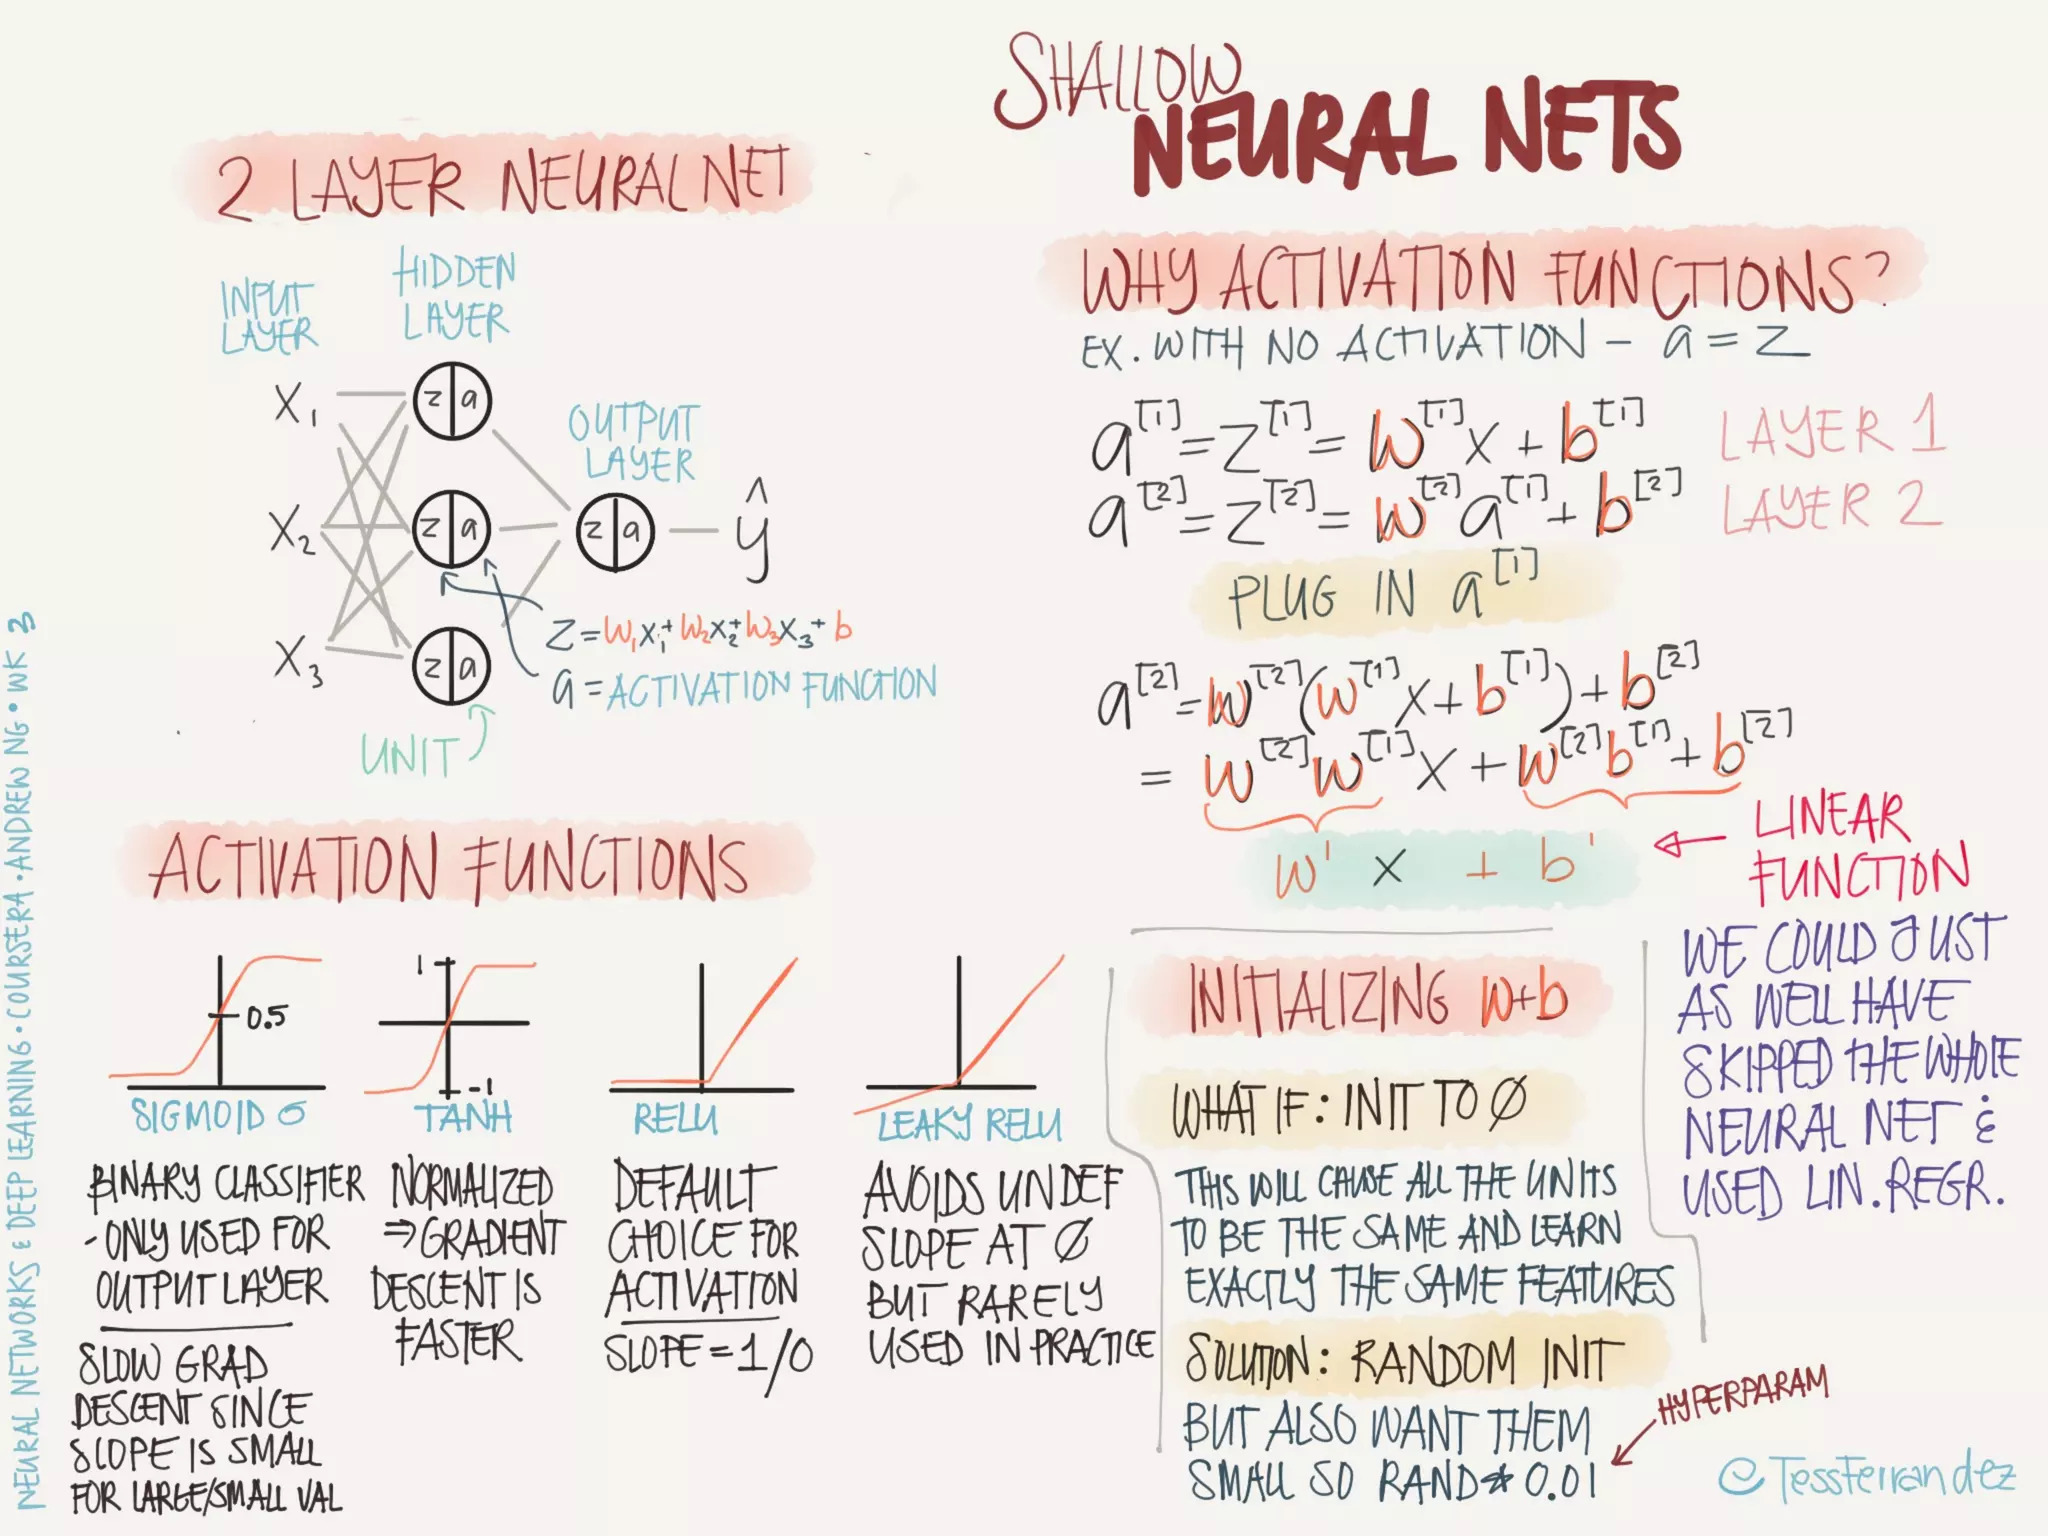 SHALLOW
NEURAL NETS
2 LAYER NEURAL NET
INPUT
LAYER
HIDDEN
LAYER
OUTPUT
LAYER
X₁
X₂
X₃
z|a
z|a
z|a
z|a
ŷ
Z=W₁X₁+W₂X₂+W₃X₃+b
a=ACTIVATION FUNCTION
UNIT
ACTIVATION FUNCTIONS
0.5
SIGMOID σ
BINARY CLASSIFIER
-ONLY USED FOR
OUTPUT LAYER
SLOW GRAD
DESCENT SINCE
SLOPE IS SMALL
FOR LARGE/SMALL VAL
1
-1
TANH
NORMALIZED
⇒GRADIENT
DESCENT IS
FASTER
RELU
DEFAULT
CHOICE FOR
ACTIVATION
SLOPE=1/0
LEAKY RELU
AVOIDS UNDEF
SLOPE AT Ø
BUT RARELY
USED IN PRACTICE
WHY ACTIVATION FUNCTIONS?
EX. WITH NO ACTIVATION - a=Z
a[1]=Z[1]=W[1]X+b[1] LAYER 1
a[2]=Z[2]=W[2]a[1]+b[2] LAYER 2
PLUG IN a[1]
a[2]=W[2](W[1]X+b[1])+b[2]
=W[2]W[1]X+W[2]b[1]+b[2]
W' X + b'
LINEAR
FUNCTION
WE COULD JUST
AS WELL HAVE
SKIPPED THE WHOLE
NEURAL NET &
USED LIN.REGR.
INITIALIZING W+b
WHAT IF: INIT TO Ø
THIS WILL CAUSE ALL THE UNITS
TO BE THE SAME AND LEARN
EXACTLY THE SAME FEATURES
SOLUTION: RANDOM INIT
BUT ALSO WANT THEM
SMALL SO RAND*0.01
HYPERPARAM
@TessFerrandez
NEURAL NETWORKS & DEEP LEARNING • COURSERA • ANDREW NG • WK 3